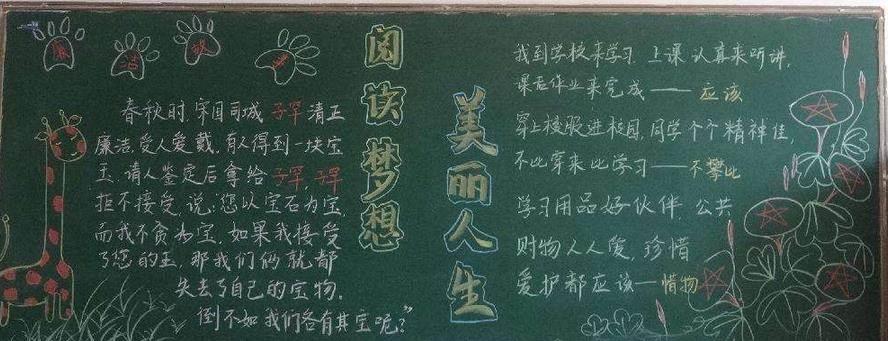 廉洁故事
春秋时，宋国司城子罕清正
廉洁，受人爱戴。有人得到一块宝
玉，请人鉴定后拿给子罕，子罕
拒不接受，说：您以宝石为宝，
而我不贪为宝。如果我接受
了您的玉，那我们俩就都
失去了自己的宝物。
倒不如我们各有其宝呢？”
阅读梦想
美丽人生
我到学校来学习，上课认真来听讲，
课后作业来完成——应该
穿上校服进校园，同学个个精神佳，
不比穿来比学习——不攀比
学习用品好伙伴，公共
财物人人爱，珍惜
爱护都应该—惜物